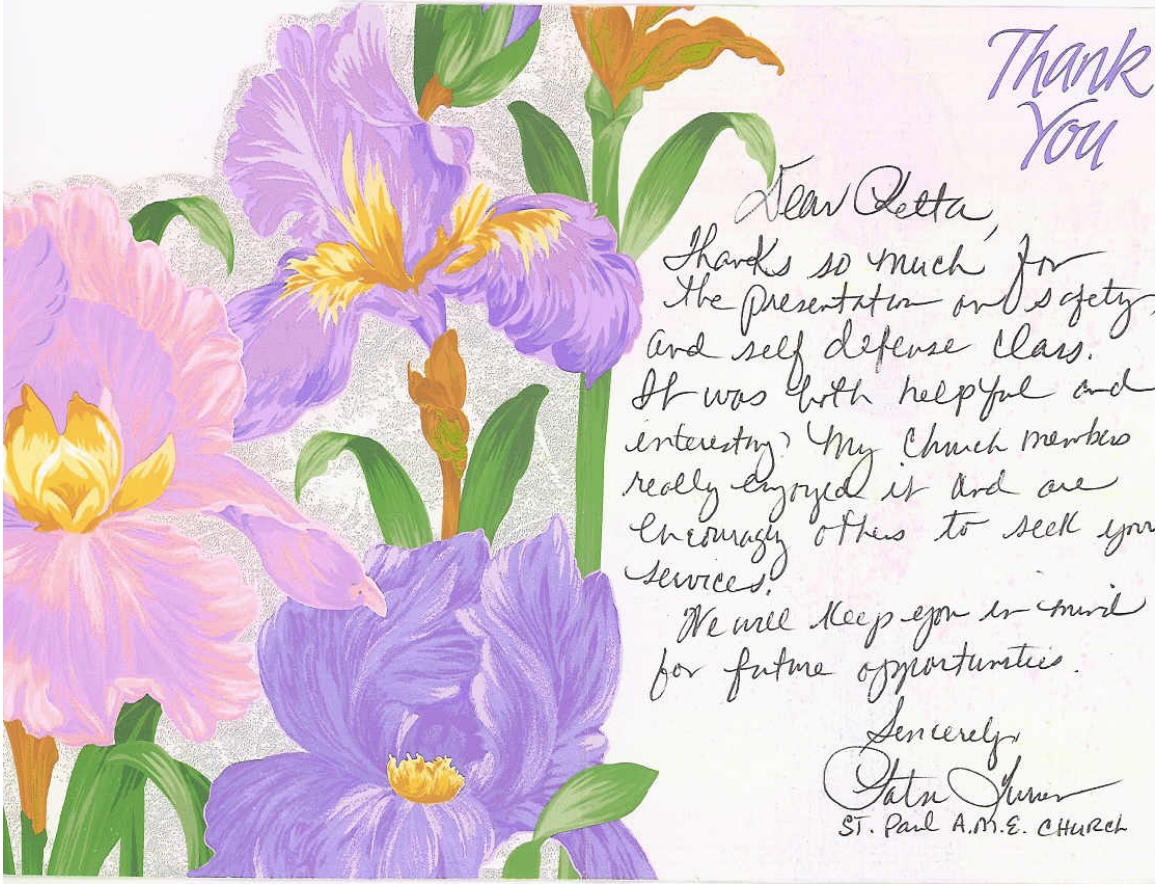 Thank
You
Dear Retta,
Thanks so much for
the presentation on safety,
and self defense class.
It was both helpful and
interesting. My Church members
really enjoyed it and are
encouraging others to seek your
services.
We will keep you in mind
for future opportunities.
Sincerely,
ST. Paul A.M.E. CHURCH